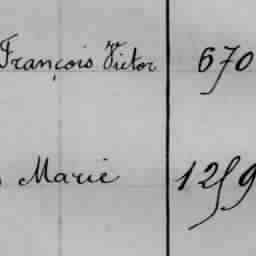 François Victor 670
Marie 1259